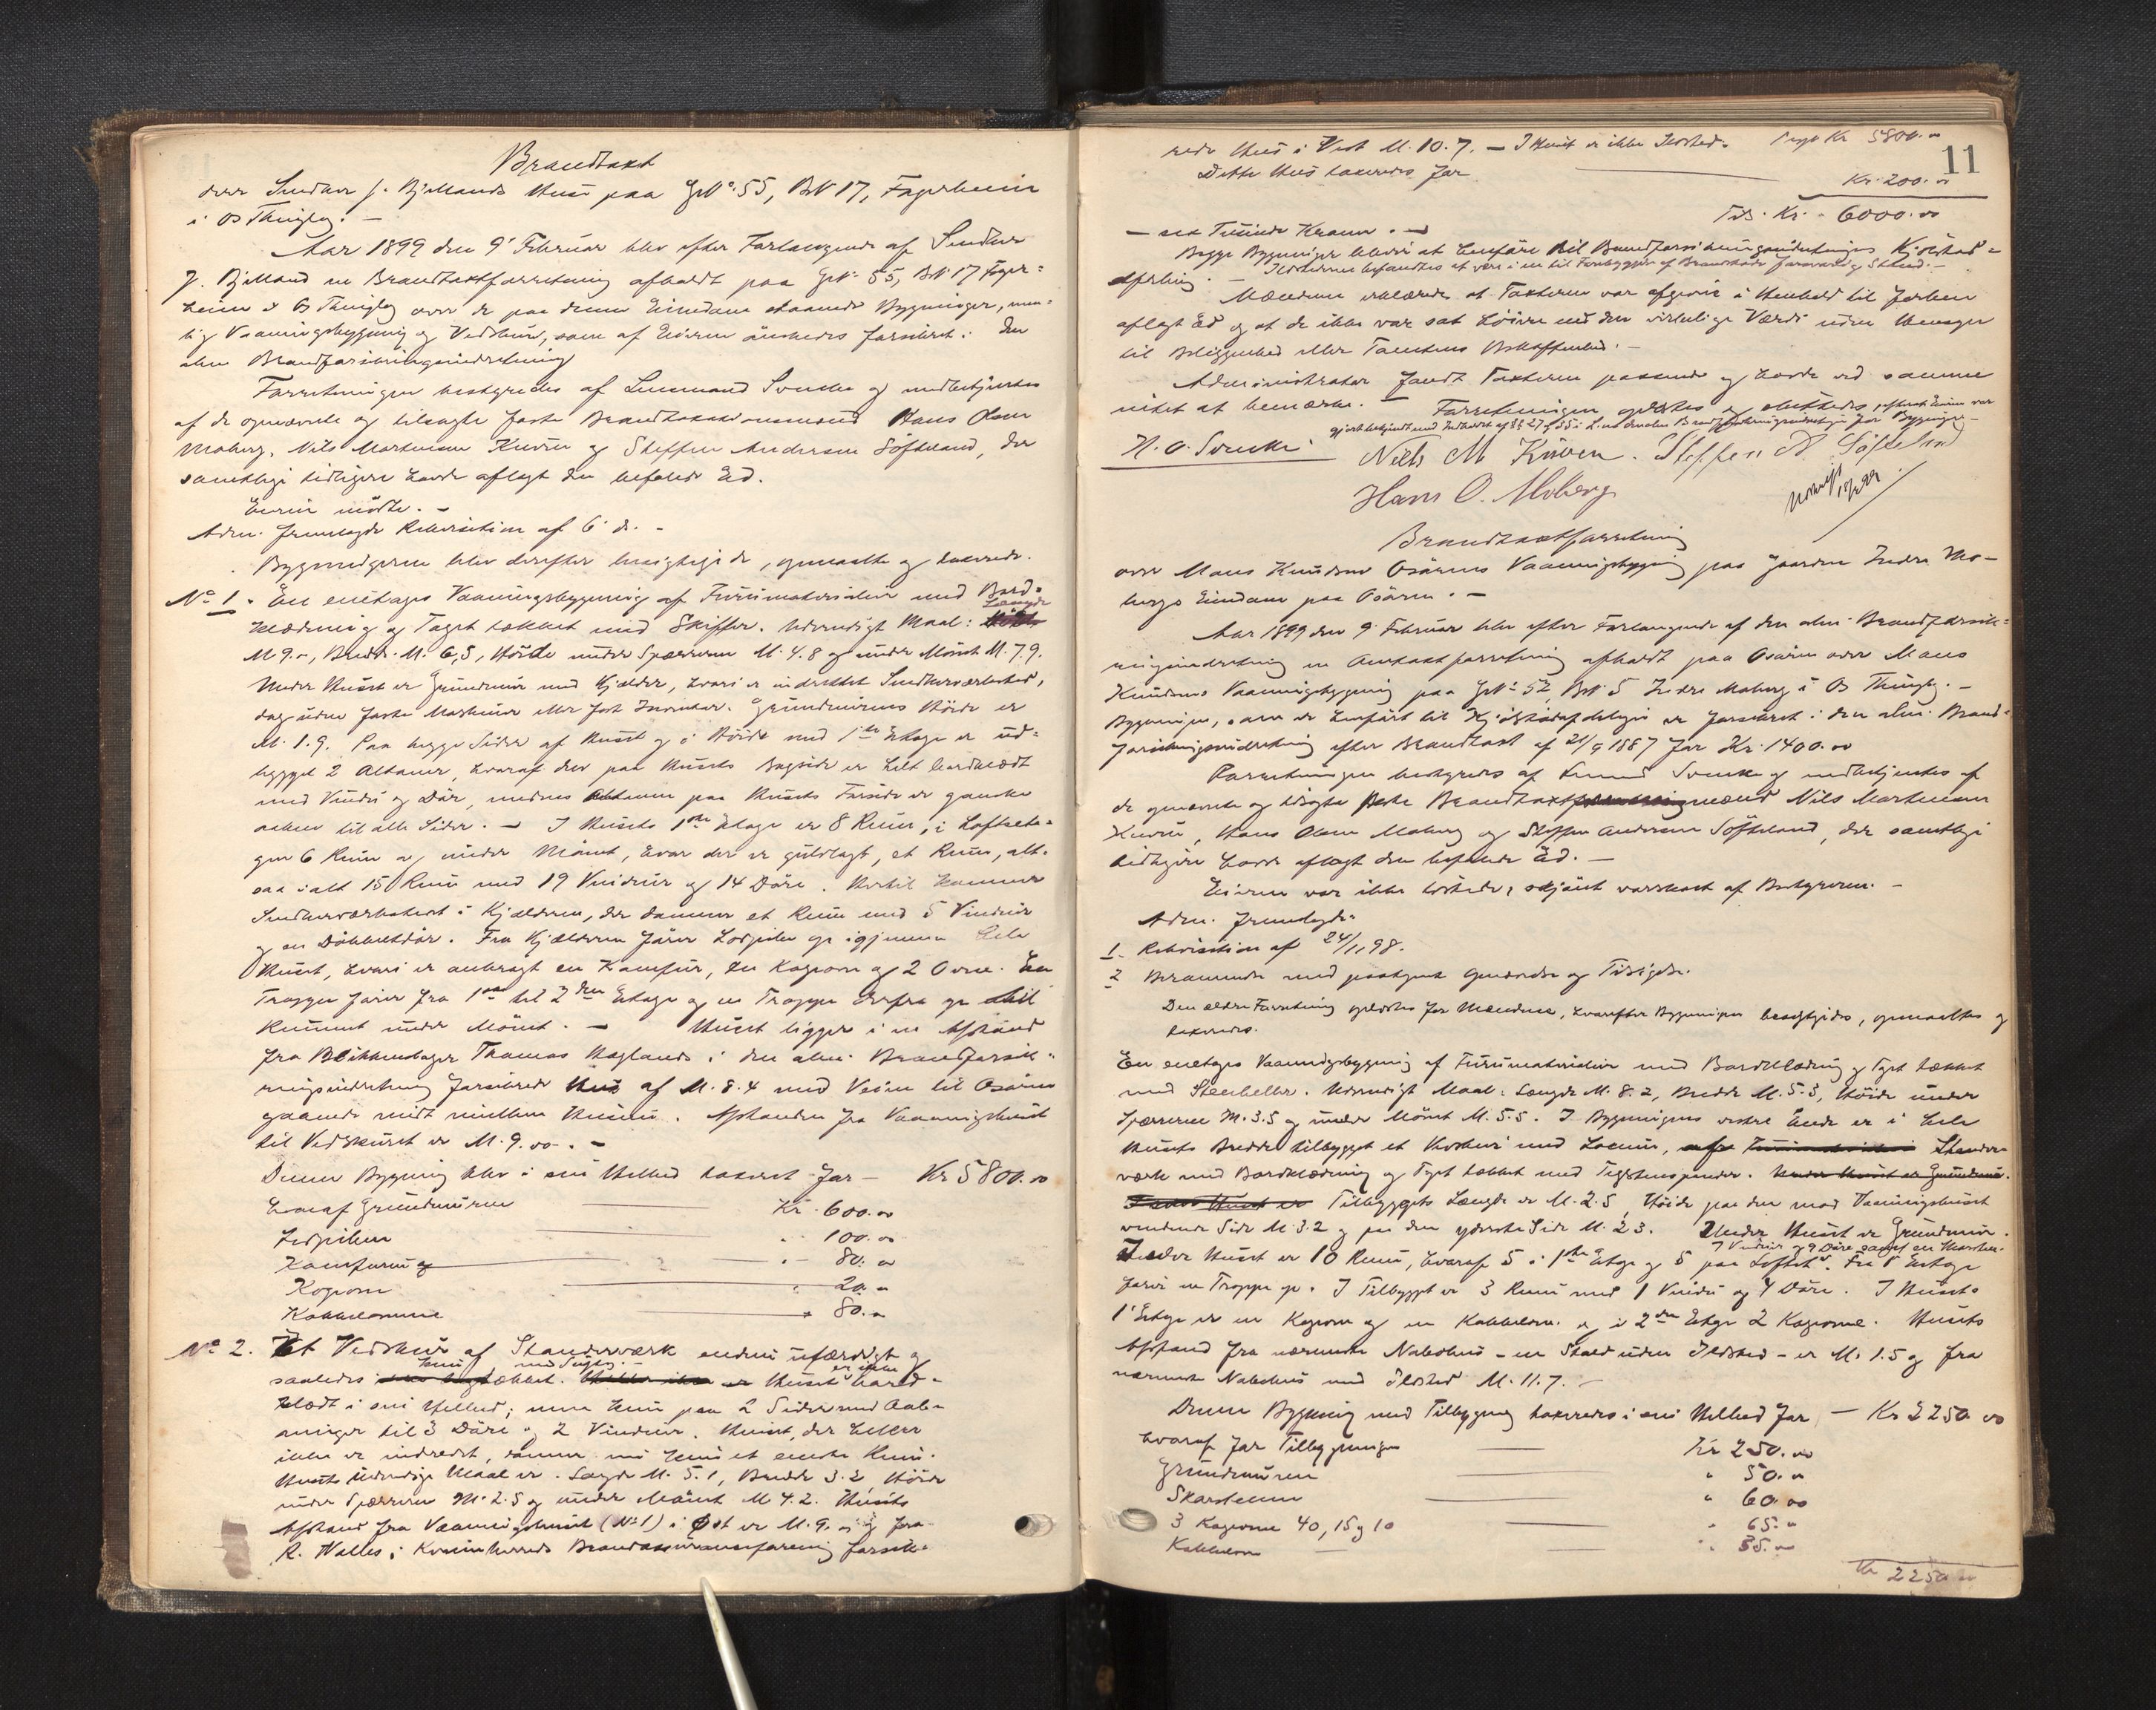 Brandtaxt
over Snedker J. Bjellands Huse paa GrNo: 55, BrN 17, Fagerheim
i Os Thinglag. —
Aar 1899 den 9' Februar blev efter Forlangende af Snedker
J. Bjelland en Brandtaxtforretning afholdt paa GrN: 55, BrN: 17 Fager=
heim i Os Thinglag over de paa denne Eiendom staaende Bygninger, nem=
lig Vaaningsbygning og Vedskur, som af Eieren önskedes forsikret i den
alm Brandforsikringsindretning
Forretningen bestyredes af Lensmand Svenke og medbetjentes
af de opnævnte og tilsagte faste Brandtaxtmænd Hans Olsen
Moberg, Nils Martinsen Kuven og Steffen Andersen Söfteland, der
samtlige tidligere havde aflagt den befalede Ed.
Eieren mödte. —
Adm. fremlagde Rekvisition af 6' ds. —
Bygningerne blev derefter besigtigede, opmaalte og taxerede.
No 1. En enetages Vaaningsbygning af Furumaterialier med Bord=
klædning og Taget tækket med Skiffer. Udvendigt Maal: Længde
M. 9.", Bredde M. 6,5, Höide under Spærrerne M. 4.8 og under Mönet M. 7.9.
Under Huset er Grundmur med Kjelder, hvori er indrettet Snedkerværksted,
dog uden faste Maskiner eller fast Inventar. Grundmurens Höide er
M. 1.9. Paa begge Sider af Huset og i Höide med 1ste Etage er ud=
bygget 2 Altaner, hvoraf den paa Husets Bagside er helt bordklædt
med Vindu og Dör, medens Altanen paa Husets Forside er ganske
aaben til alle Sider. — I Husets 1ste Etage er 8 Rum, i Loftseta=
gen 6 Rum og under Mönet, hvor der er gulvlagt, et Rum, alt=
saa i alt 15 Rum med 19 Vinduer og 14 Döre. Hertil kommer
Snedkerværkstedet i Kjelderen, der danner et Rum med 5 Vinduer
og en Dobbeltdör. Fra Kjelderen förer Lodpiben op igjennem hele
Huset, hvori er anbragt en Komfur, en Kogeovn og 2 Ovne. En
Trappe förer fra 1ste til 2den Etage og en Trappe derfra op til
Rummet under Mönet. — Huset ligger i en Afstand
fra Blikkenslager Thomas Haglands i den alm. Brandforsik=
ringsindretning forsikrede Hus af M. 8.4 med Veien til Osören
gaaende midt mellem Husene. Afstanden fra Vaaningshuset
til Vedskuret er M. 9.00. —
Denne Bygning blev i sin Helhed taxeret for — Kr 5800.00
hvoraf Grundmuren Kr. 600.00
Lodpiben " 100.00
Komfuren og " 80.00
Kogeovn " 20.00
Kakkelovnene " 80.00
No 2. Et Vedskur af Standerværk endnu ufærdigt og
saaledes kun tækket med Sutag. — Huset er ikke bord=
klædt i sin Helhed; men kun paa 2 Sider med Aab=
ninger til 3 Döre og 2 Vinduer. Huset, der heller
ikke er indredet, danner nu kun et eneste Rum.
Husets udvendige Maal er: Længde M. 5.1, Bredde 3.2, Höide
under Spærrerne M. 2.5 og under Mönet M 4.2. Husets
Afstand fra Vaaningshuset (No 1) i Öst er M. 9.00 og fra
R. Walles i Kvinnherreds Brandassuranceforening forsik=
11
rede Hus i Vest M. 10.7. — I Huset er ikke Ildsted. Trspt Kr 5800.00
Dette Hus taxeredes for Kr. 200.00
Tils. Kr. 6000.00
— sex Tusinde Kroner. —
Begge Bygninger bliver at henföre til Brandforsikringsindretningens Kjöbstad=
Ildstederne befandtes at være i en til Forebyggelse af Brandskade forsvarlig Stand. —
afdeling.
Mændene erklærede at Taxterne var afgivne i Henhold til forhen
aflagt Ed og at de ikke var sat höiere end den virkelige Værdi uden Hensyn
til Beliggenhed eller Tomtens Beskaffenhed. —
Administrator fandt Taxterne passende og havde ved samme
intet at bemærke. — Forretningen oplæstes og sluttedes, efterat Eieren var
gjort bekjendt med Indholdet af §§ 27 og 35 i L. om den alm Brandforsikringsindretning for Bygninger —
N. O. Svenke. Niels M Küven. Steffen A. Söfteland
Hans O. Moberg
Brandtaxtforretning
over Mons Knudsens Osörens Vaaningsbygning paa Gaarden Indre Mo=
bergs Eiendom paa Osören. —
Aar 1899 den 9' Februar blev efter Forlangende af den alm. Brandforsik=
ringsindretning en Omtaxtforretning afholdt paa Osören over Mons
Knudsens Vaaningsbygning paa GrN: 52, BrN: 5 Indre Moberg i Os Thinglag. —
Bygningen, som er henfört til Kjöbstadafdelingen er forsikret i den alm. Brand=
forsikringsindretning efter Brandtaxt af 21/9 1887 for Kr. 1400.00
Forretningen bestyredes af Lensmd Svenke og medbetjentes af
de opnævnte og tilsagte faste Brandtaxtmænd Nils Martinsen
Kuven, Hans Olsen Moberg og Steffen Andersen Söfteland, der samtlige
tidligere havde aflagt den befalede Ed. —
Eieren var ikke tilstede, skjönt varskoet af Bestyreren. —
Adm. fremlagde:
1. Rekvisition af 24/1 98.
2 Berammelse med paategnet Opnævnelse og Tilsigelse.
Den ældre Forretning oplæstes for Mændene, hvorefter Bygningen besigtigedes, opmaaltes og
taxeredes.
En enetages Vaaningsbygning af Furumaterialier med Bordklædning og Taget tækket
med Steenheller. Udvendigt Maal: Længde M. 8.2, Bredde M. 5.3, Höide under
Spærrerne M. 3.5 og under Mönet M. 5.5. I Bygningens vestre Ende er i hele
Husets Bredde tilbygget et Vedskur med Locum, Stander=
værk med Bordklædning og Taget tækket med Teglstenspander.
Tilbyggets Længde er M. 2.5, Höide paa den mod Vaaningshuset
vendende Side M 3.2 og paa den yderste Side M. 2.3. Under Huset er Grundmur.
7 Vinduer og 9 Döre samt en
I Huset er 10 Rum, hvoraf 5 i 1ste Etage og 5 paa Loftet. Fra 1' Etage
förer en Trappe op. I Tilbygget er 3 Rum med 1 Vindu og 4 Döre. I Husets
1' Etage er en Kogeovn og en Kakkelovn og i 2den Etage 2 Kogeovne. Husets
Afstand fra nærmeste Nabohus — en Stald uden Ildsted — er M. 1.5 og fra
nærmeste Nabohus med Ildsted M. 11.7. —
Denne Bygning med Tilbygning taxeredes i sin Helhed for — Kr 2250.00
hvoraf for Tilbygningen Kr 250.00
Grundmuren " 50.00
Skorstenen " 60.00
3 Kogeovne 40, 15 og 10 " 65.00
Kakkelovn " 35.00
Kr 2250.00